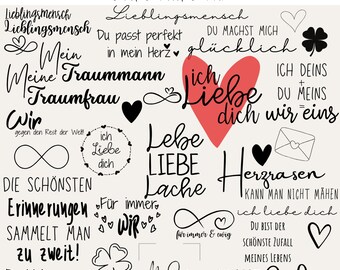 Lieblingsmensch
Lieblingsmensch
Lieblingsmensch
Du passt perfekt
in mein Herz
DU MACHST MICH
glücklich
Mein
Meine Traummann
Traumfrau
ich
Liebe
dich
ICH DEINS
+
DU MEINS
=
wir eins
Wir
gegen den Rest der Welt!
ich
liebe
dich
Lebe
LIEBE
Lache
Herzrasen
KANN MAN NICHT MÄHEN
DIE SCHÖNSTEN
Erinnerungen
SAMMELT MAN
zu zweit!
Für immer
WIR
für immer & ewig
ich liebe dich
DU BIST DER
SCHÖNSTE ZUFALL
MEINES LEBENS